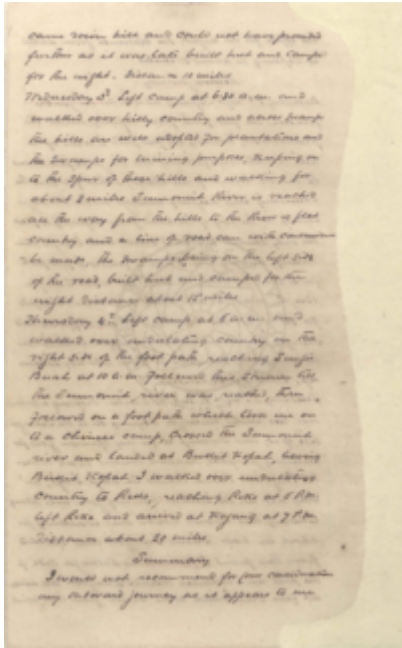 came down hills and could not have proceeded
further as it was late built hut and camped
for the night. Distance 10 miles
Wednesday 3rd Left camp at 6.30 a.m. and
walked over hilly country and across swamp
the hills are well adapted for plantations and
the swamps for mining purposes, keeping on
to the spur of these hills and walking for
about 2 miles River is reached
all the way from the hills to the River is flat
country and a line of road can with
be made, the swamps being on the left side
of the road, built hut and camped for the
night distance about 12 miles
Thursday 4th Left camp at 6 a.m. and
walked over undulating country on the
right side of the foot path, reaching
at 10 a.m. followed this till
the river was reached, then
followed on a foot path which led me on
to a Chinese camp, crossed the
river and landed at Bukit Kopah, leaving
Bukit Kopah I walked over undulating
country to Reko, reaching Reko at 5 P.M.
left Reko and arrived at Kajang at 7 P.M.
Distance about 20 miles.
Summary
I would not recommend for your consideration
my outward journey as it appears to me